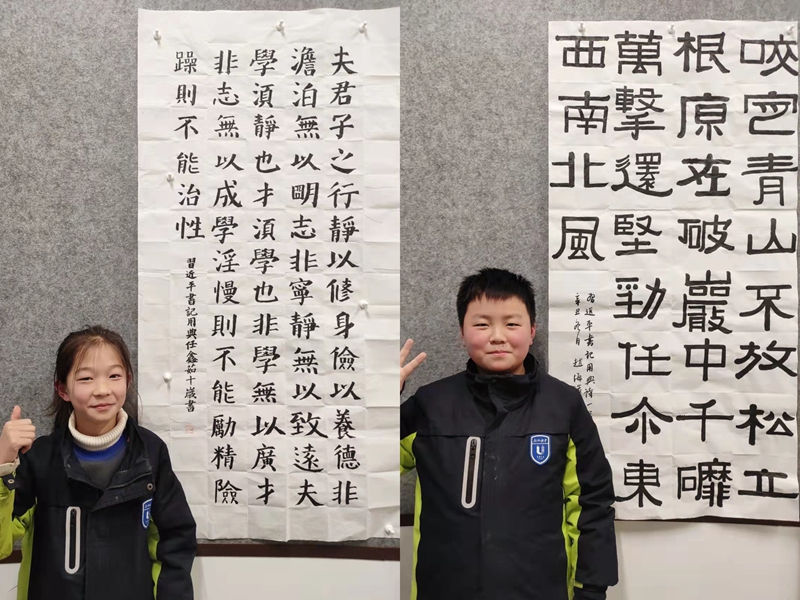 夫君子之行靜以修身儉以養德非
澹泊無以明志非寧靜無以致遠夫
學須靜也才須學也非學無以廣才
非志無以成學淫慢則不能勵精險
躁則不能治性
習近平書記用典任鑫茹十歲書
咬定青山不放松立
根原在破巖中千磨
萬擊還堅勁任尒東
西南北風
習近平書記用典
辛丑冬月 趙海